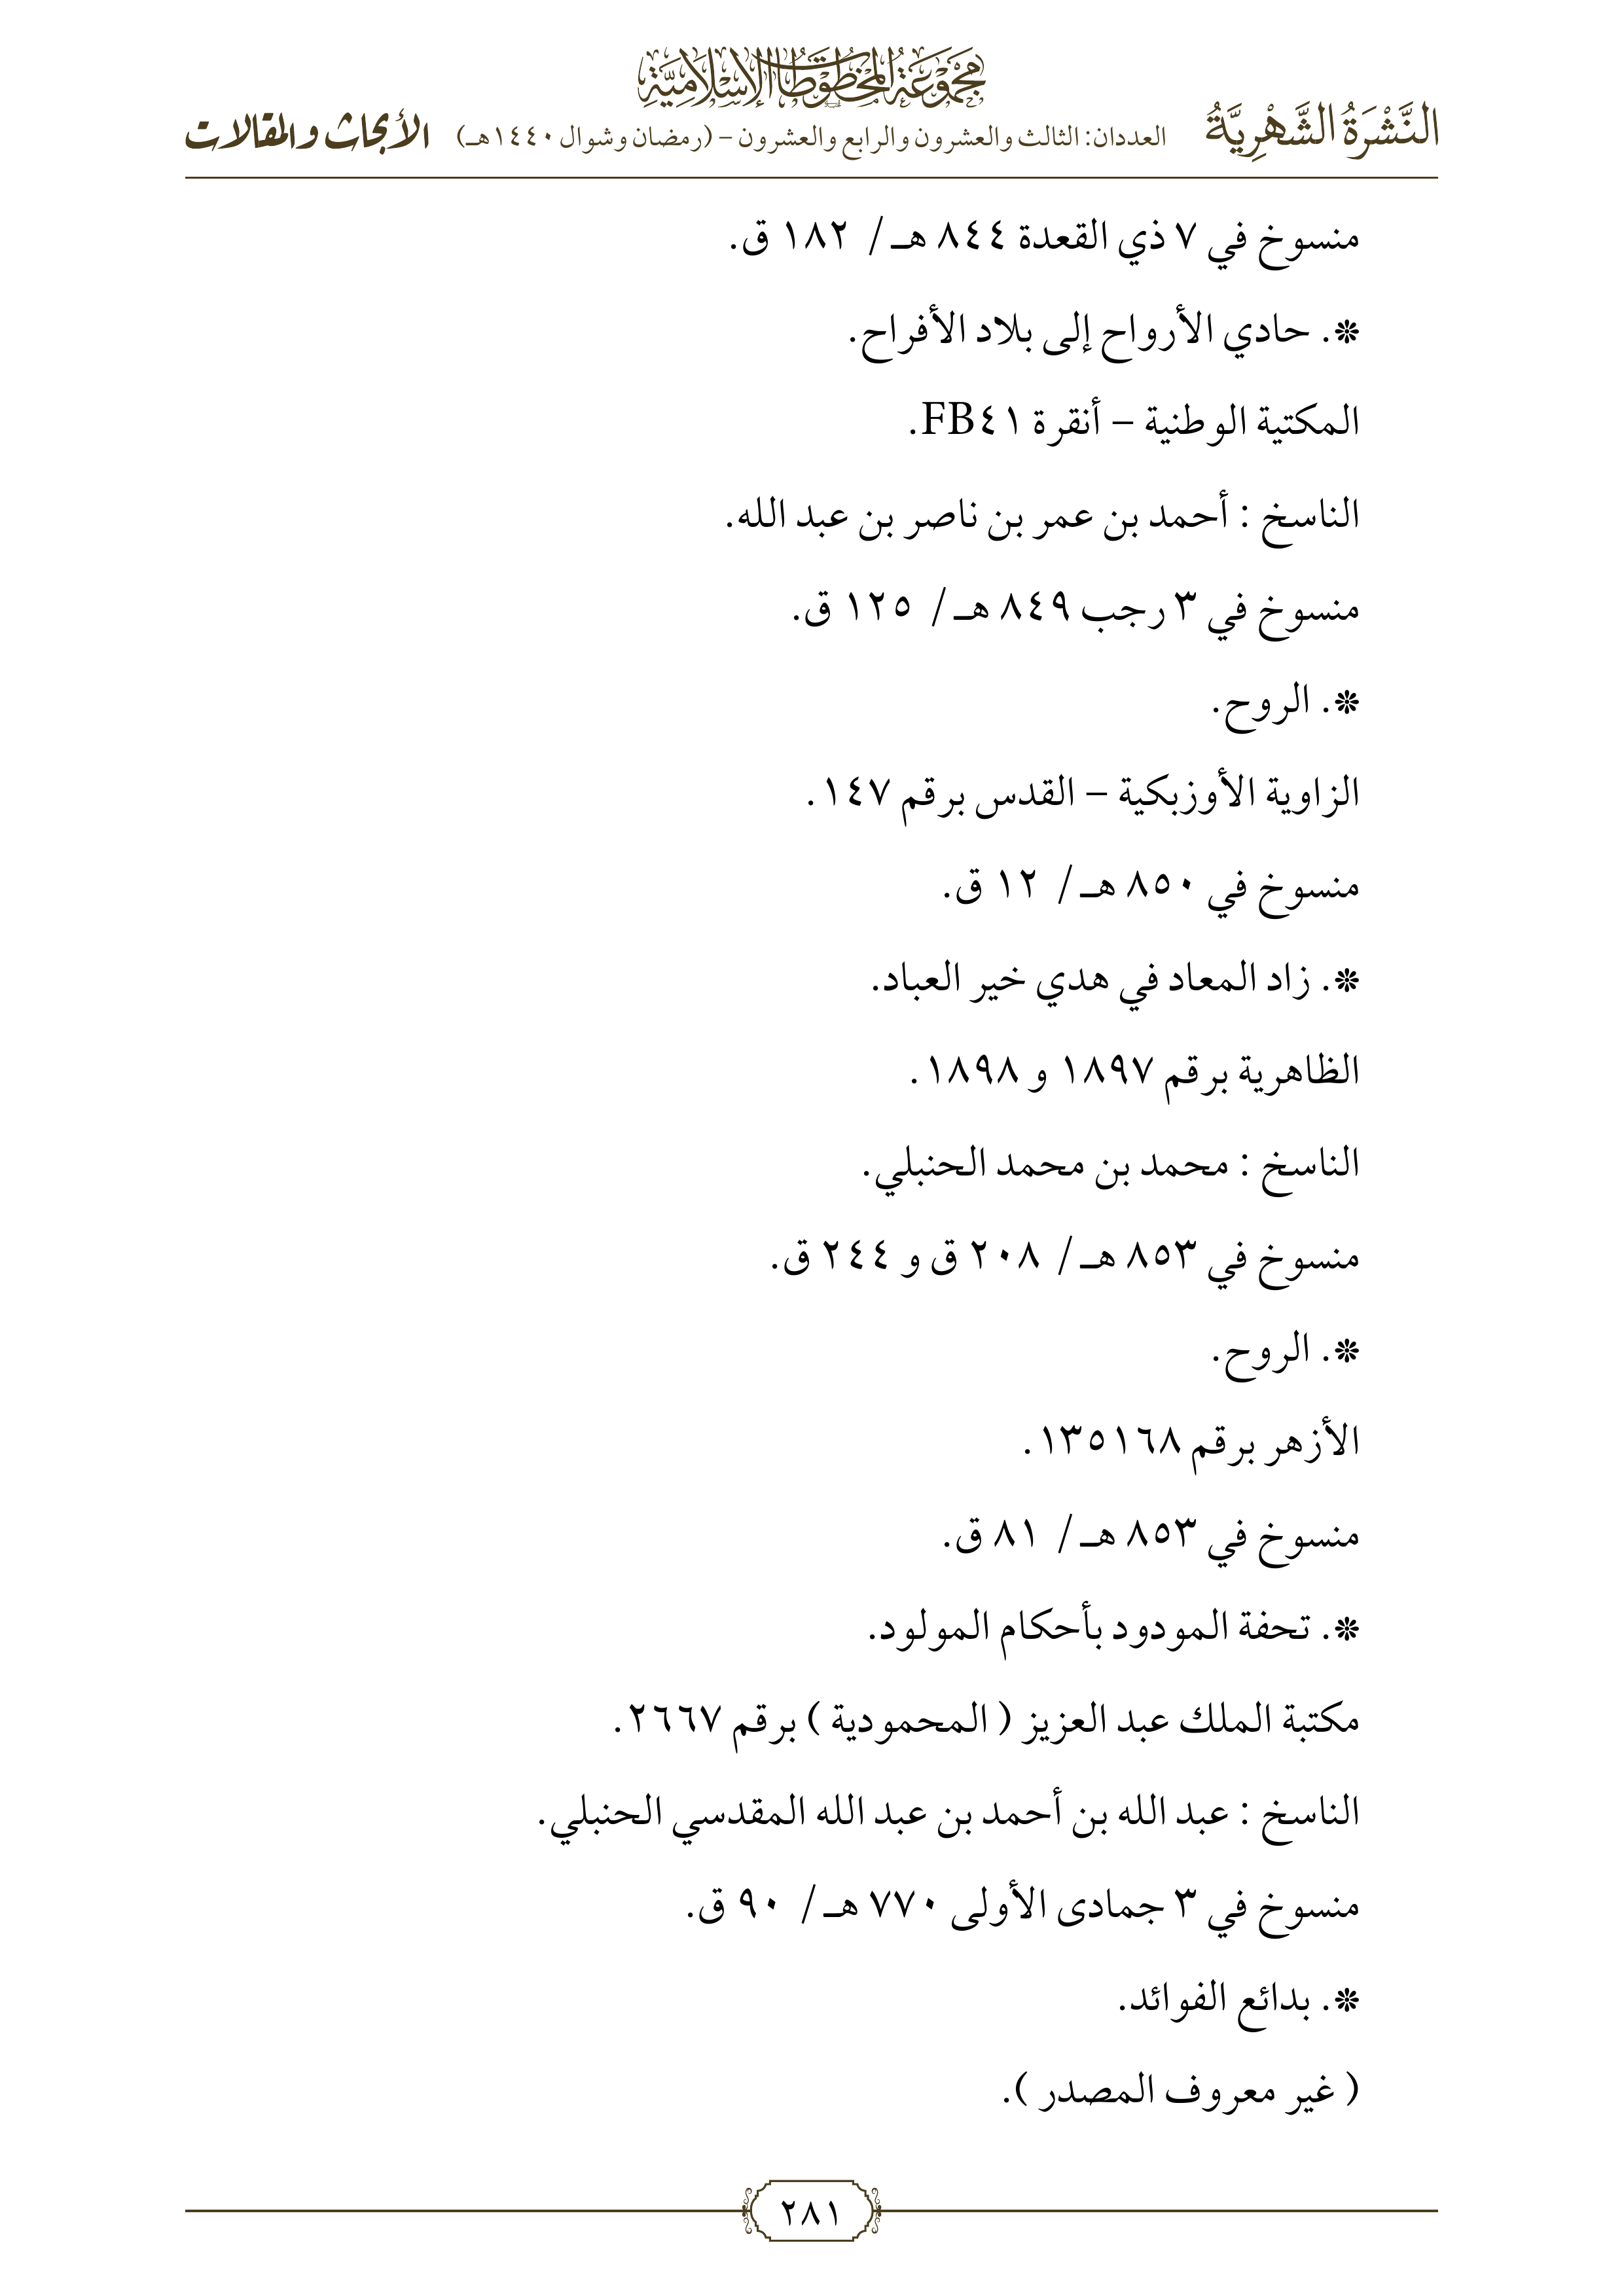 مجموعة المخطوطات الإسلامية
النَّشْرَةُ الشَّهْرِيَّةُ العددان: الثالث والعشرون والرابع والعشرون – (رمضان وشوال ١٤٤٠هـ) الأبحاث والمقالات
منسوخ في ٧ ذي القعدة ٨٤٤ هـ/ ١٨٢ ق.
❊. حادي الأرواح إلى بلاد الأفراح.
المكتبة الوطنية – أنقرة FB٤١.
الناسخ : أحمد بن عمر بن ناصر بن عبد الله.
منسوخ في ٣ رجب ٨٤٩ هـ/ ١٢٥ ق.
❊. الروح.
الزاوية الأوزبكية – القدس برقم ١٤٧.
منسوخ في ٨٥٠ هـ/ ١٢ ق.
❊. زاد المعاد في هدي خير العباد.
الظاهرية برقم ١٨٩٧ و ١٨٩٨.
الناسخ : محمد بن محمد الحنبلي.
منسوخ في ٨٥٣ هـ/ ٢٠٨ ق و ٢٤٤ ق.
❊. الروح.
الأزهر برقم ١٣٥١٦٨.
منسوخ في ٨٥٣ هـ/ ٨١ ق.
❊. تحفة المودود بأحكام المولود.
مكتبة الملك عبد العزيز ( المحمودية ) برقم ٢٦٦٧.
الناسخ : عبد الله بن أحمد بن عبد الله المقدسي الحنبلي.
منسوخ في ٣ جمادى الأولى ٧٧٠ هـ/ ٩٠ ق.
❊. بدائع الفوائد.
( غير معروف المصدر ).
٢٨١